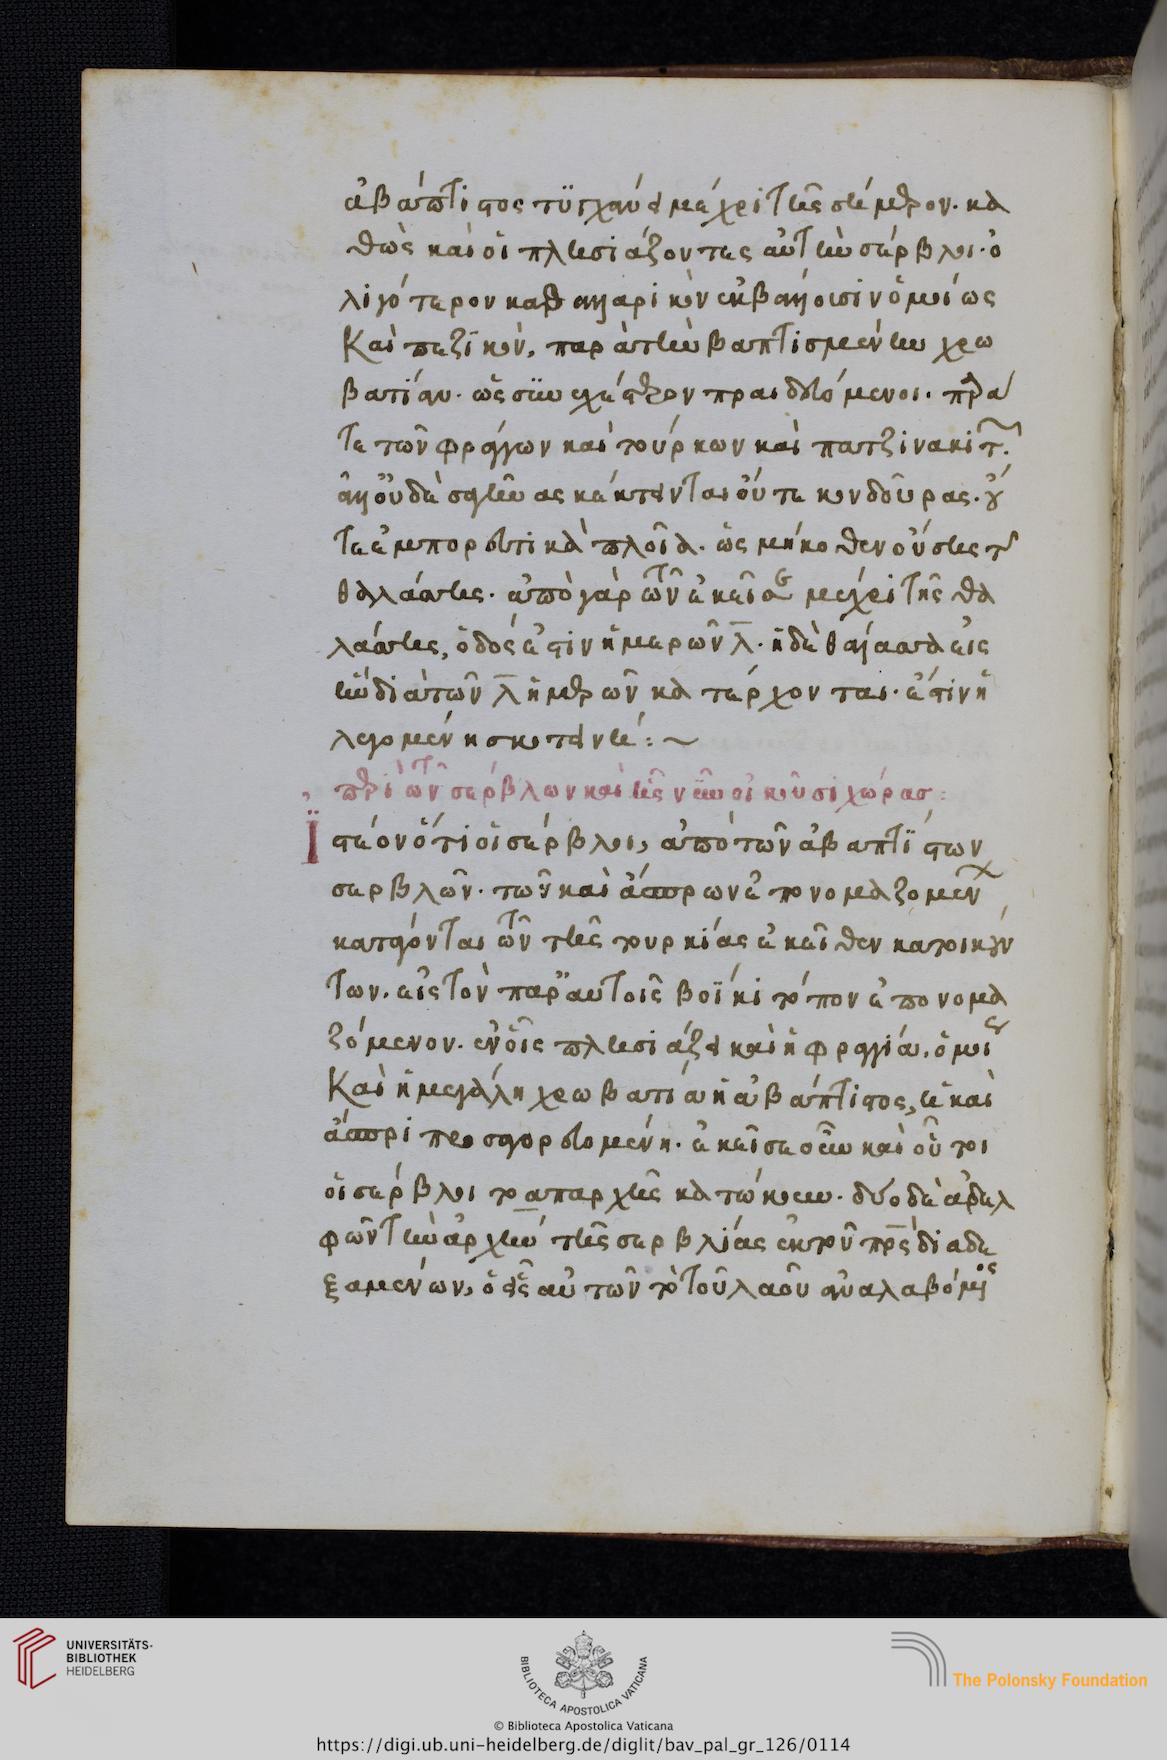 ἀβάπτιστος τϋγχάνει μέχρι τῆς σήμερον. κα
θὼς καὶ οἱ πλησιάζοντες αὐτὴν σέρβλοι. ὀ
λιγότερον καβαλλαρικὸν ἐκβάλλουσιν ὁμοίως
Καὶ πεζϊκόν, παρὰ τὴν βαπτισμένην χρω
βατίαν. ὡς συνεχέστερον πραιδευόμενοι. παρά
τε τῶν φράγγων καὶ τούρκων καὶ πατζινακιτῶν.
ἀλλ' οὐδὲ σαγήνας κέκτηνται οὔτε κονδούρας. οὔ
τε ἐμπορευτικὰ πλοῖα. ὡς μήκοθεν οὔσης τῆς
θαλάσσης. ἀπὸ γὰρ τῶν ἐκεῖσε μέχρι τῆς θα
λάσσης, ὁδός ἐστιν ἡμερῶν λ. ἡ δὲ θάλασσα εἰς
ἣν διὰ τῶν λ ἡμερῶν κατέρχονται. ἐστὶν ἡ
λεγομένη σκοτεινή: ~
περὶ τῶν σέρβλων καὶ ἧς νῦν οἰκοῦσι χώρας:
Ἰστέον ὅτι οἱ σέρβλοι, ἀπὸ τῶν ἀβαπτΐστων
σερβλῶν. τῶν καὶ ἄσπρων ἐπονομαζομένων
κατάγονται τῶν τῆς τουρκίας ἐκεῖθεν κατοικούν
των. εἰς τὸν παρ' αὐτοῖς βοΐκι τόπον ἐπονομα
ζόμενον. ἐν οἷς πλησιάζει καὶ ἡ φραγγία, ὁμοίως
Καὶ ἡ μεγάλη χρωβατία ἡ ἀβάπτιστος, ἡ καὶ
ἄσπρη προσαγορευομένη. ἐκεῖσε οὖν καὶ οὗτοι
οἱ σέρβλοι τὸ απαρχῆς κατώκουν. δύο δὲ ἀδελ
φῶν τὴν ἀρχὴν τῆς σερβλίας ἐκ τοῦ πρς διαδε
ξαμένων, ὁ εἷς αὐτῶν τὸ τοῦ λαοῦ ἀναλαβόμενος
UNIVERSITÄTS-
BIBLIOTHEK
HEIDELBERG
BIBLIOTECA APOSTOLICA VATICANA
© Biblioteca Apostolica Vaticana
The Polonsky Foundation
https://digi.ub.uni-heidelberg.de/diglit/bav_pal_gr_126/0114